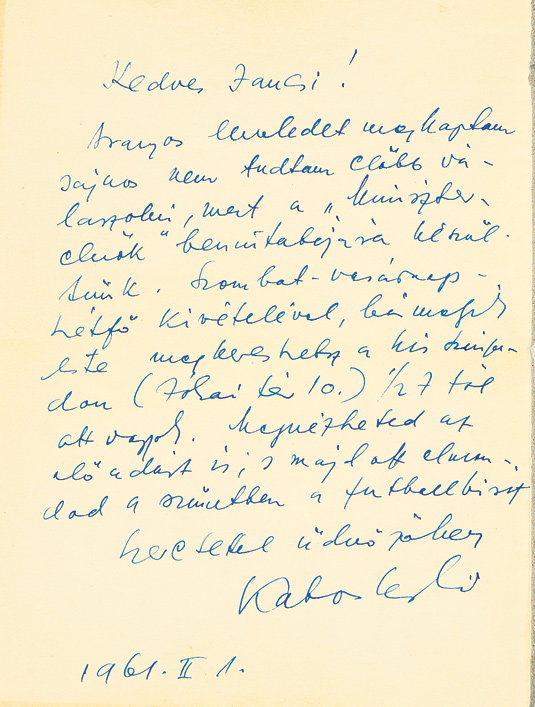 Kedves Jancsi!
Aranyos leveledet megkaptam
sajnos nem tudtam előbb vá-
laszolni, mert a „Miniszter-
elnök" bemutatójára készül-
tünk. Szombat-vasárnap-
hétfő kivételével, bármelyik
este megkereshetsz a kis színpa-
don (Jókai tér 10.) 1/2 7 től
ott vagyok. Megnézheted az
előadást is, s majd ott elmon-
dod a szünetben a futballhírt
szeretettel üdvözöl
Kabos László
1961. II 1.